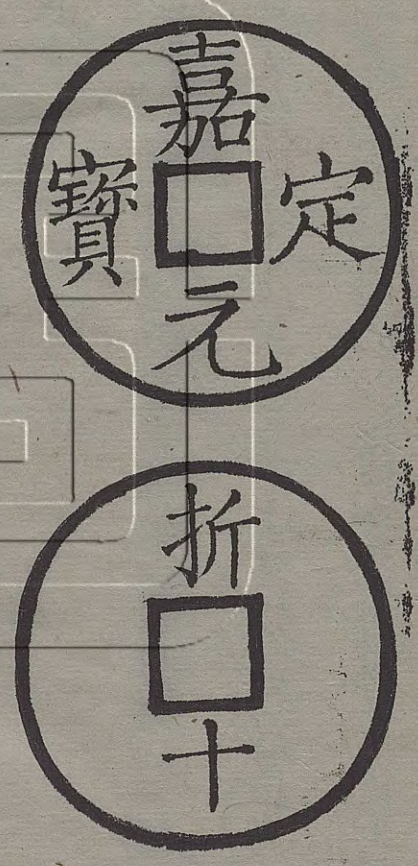 嘉定元寶
折十